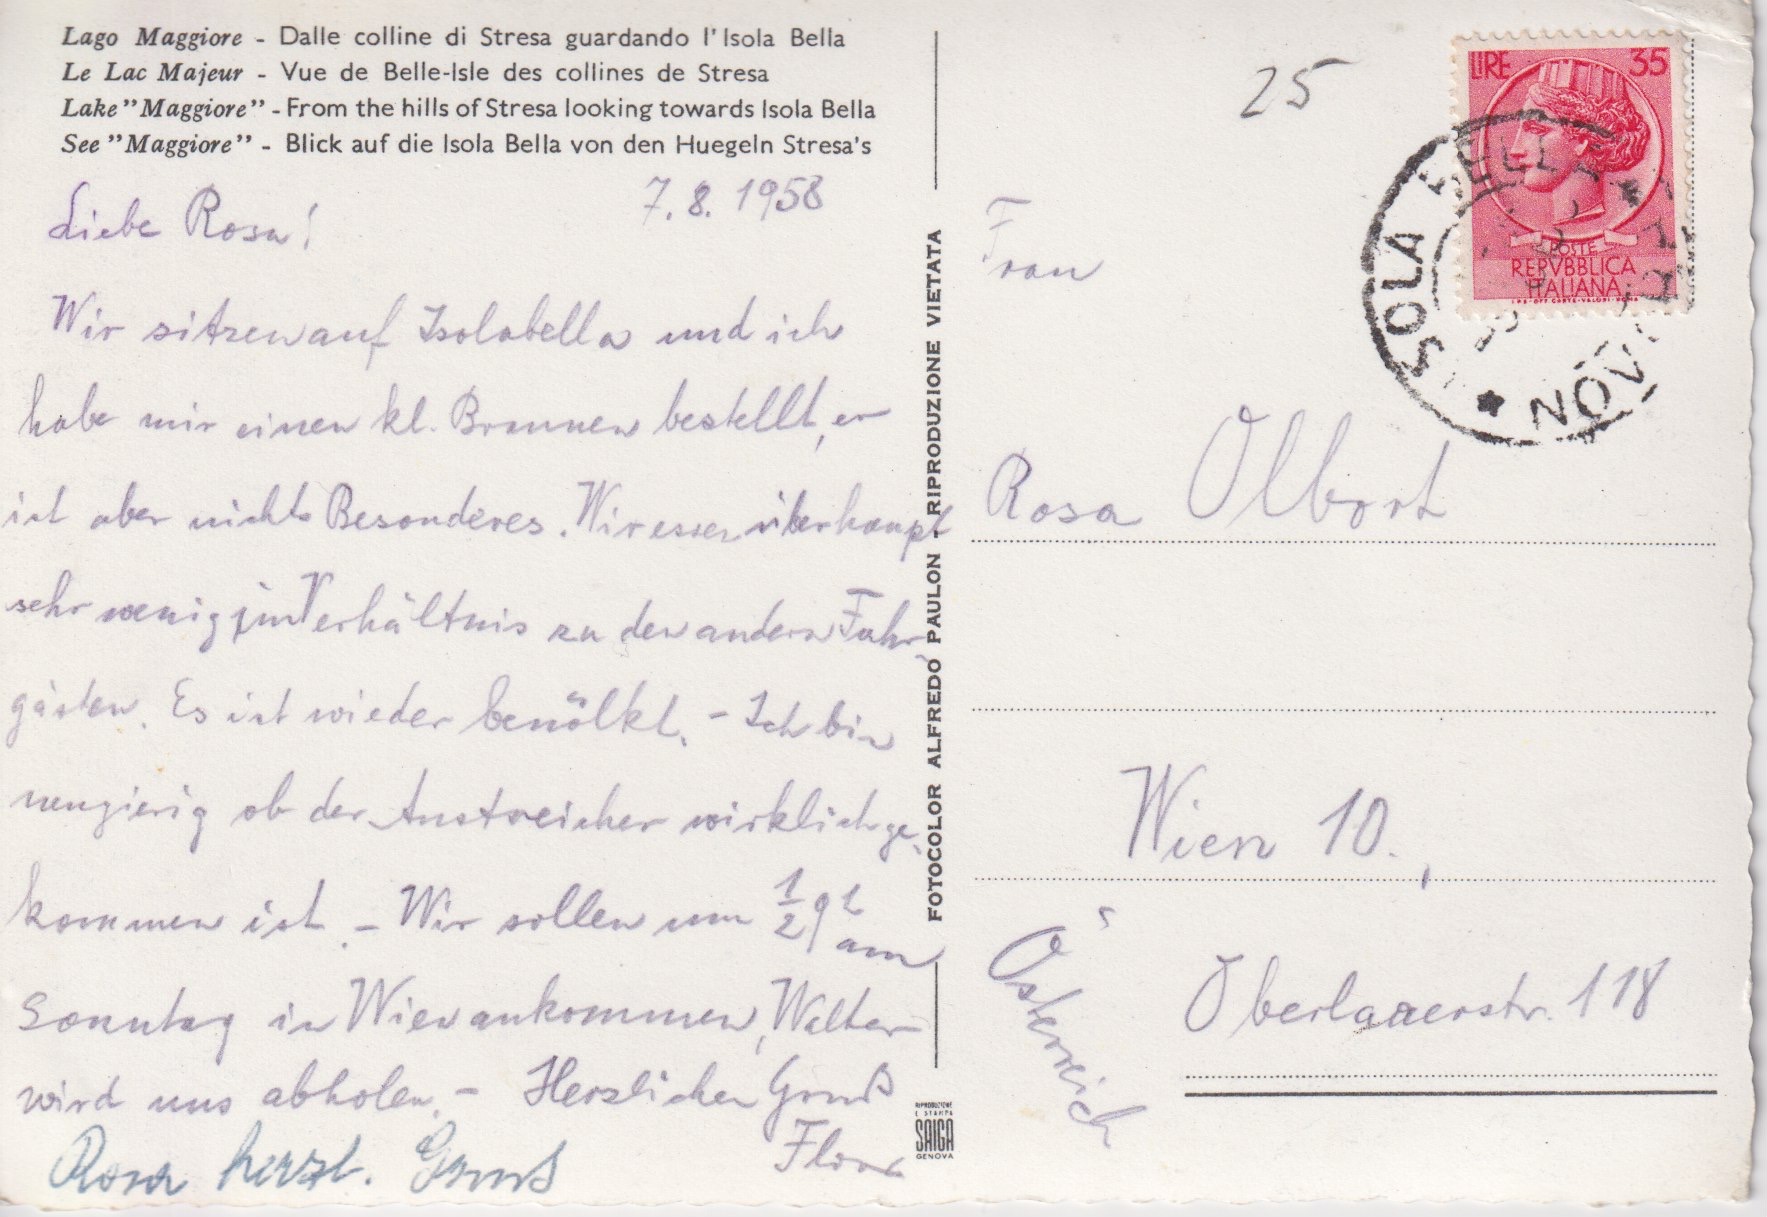 Lago Maggiore - Dalle colline di Stresa guardando l'Isola Bella
Le Lac Majeur - Vue de Belle-Isle des collines de Stresa
Lake "Maggiore" - From the hills of Stresa looking towards Isola Bella
See "Maggiore" - Blick auf die Isola Bella von den Huegeln Stresa's
7.8.1958
Liebe Rosa!
Wir sitzen auf Isolabella und ich
habe mir einen kl. Braunen bestellt, er
ist aber nichts Besonderes. Wir essen überhaupt
sehr wenig im Verhältnis zu den andern Fahr-
gästen. Es ist wieder bewölkt. - Ich bin
neugierig ob der Anstreicher wirklich ge-
kommen ist. - Wir sollen um 1/2 9h am
Sonntag in Wien ankommen, Walter
wird uns abholen. - Herzlichen Gruß
Rosa herzl. Gruß
FOTOCOLOR ALFREDO PAULON - RIPRODUZIONE VIETATA
RIPRODUZIONE
E STAMPA
SAIGA
GENOVA
25
LIRE 35
POSTE
REPVBBLICA
ITALIANA
I.P.S.-OFF. CARTE-VALORI-ROMA
ISOLA BELLA
NOV
Frau
Rosa Olbort
Wien 10.,
Oberlaaerstr. 118
Österreich